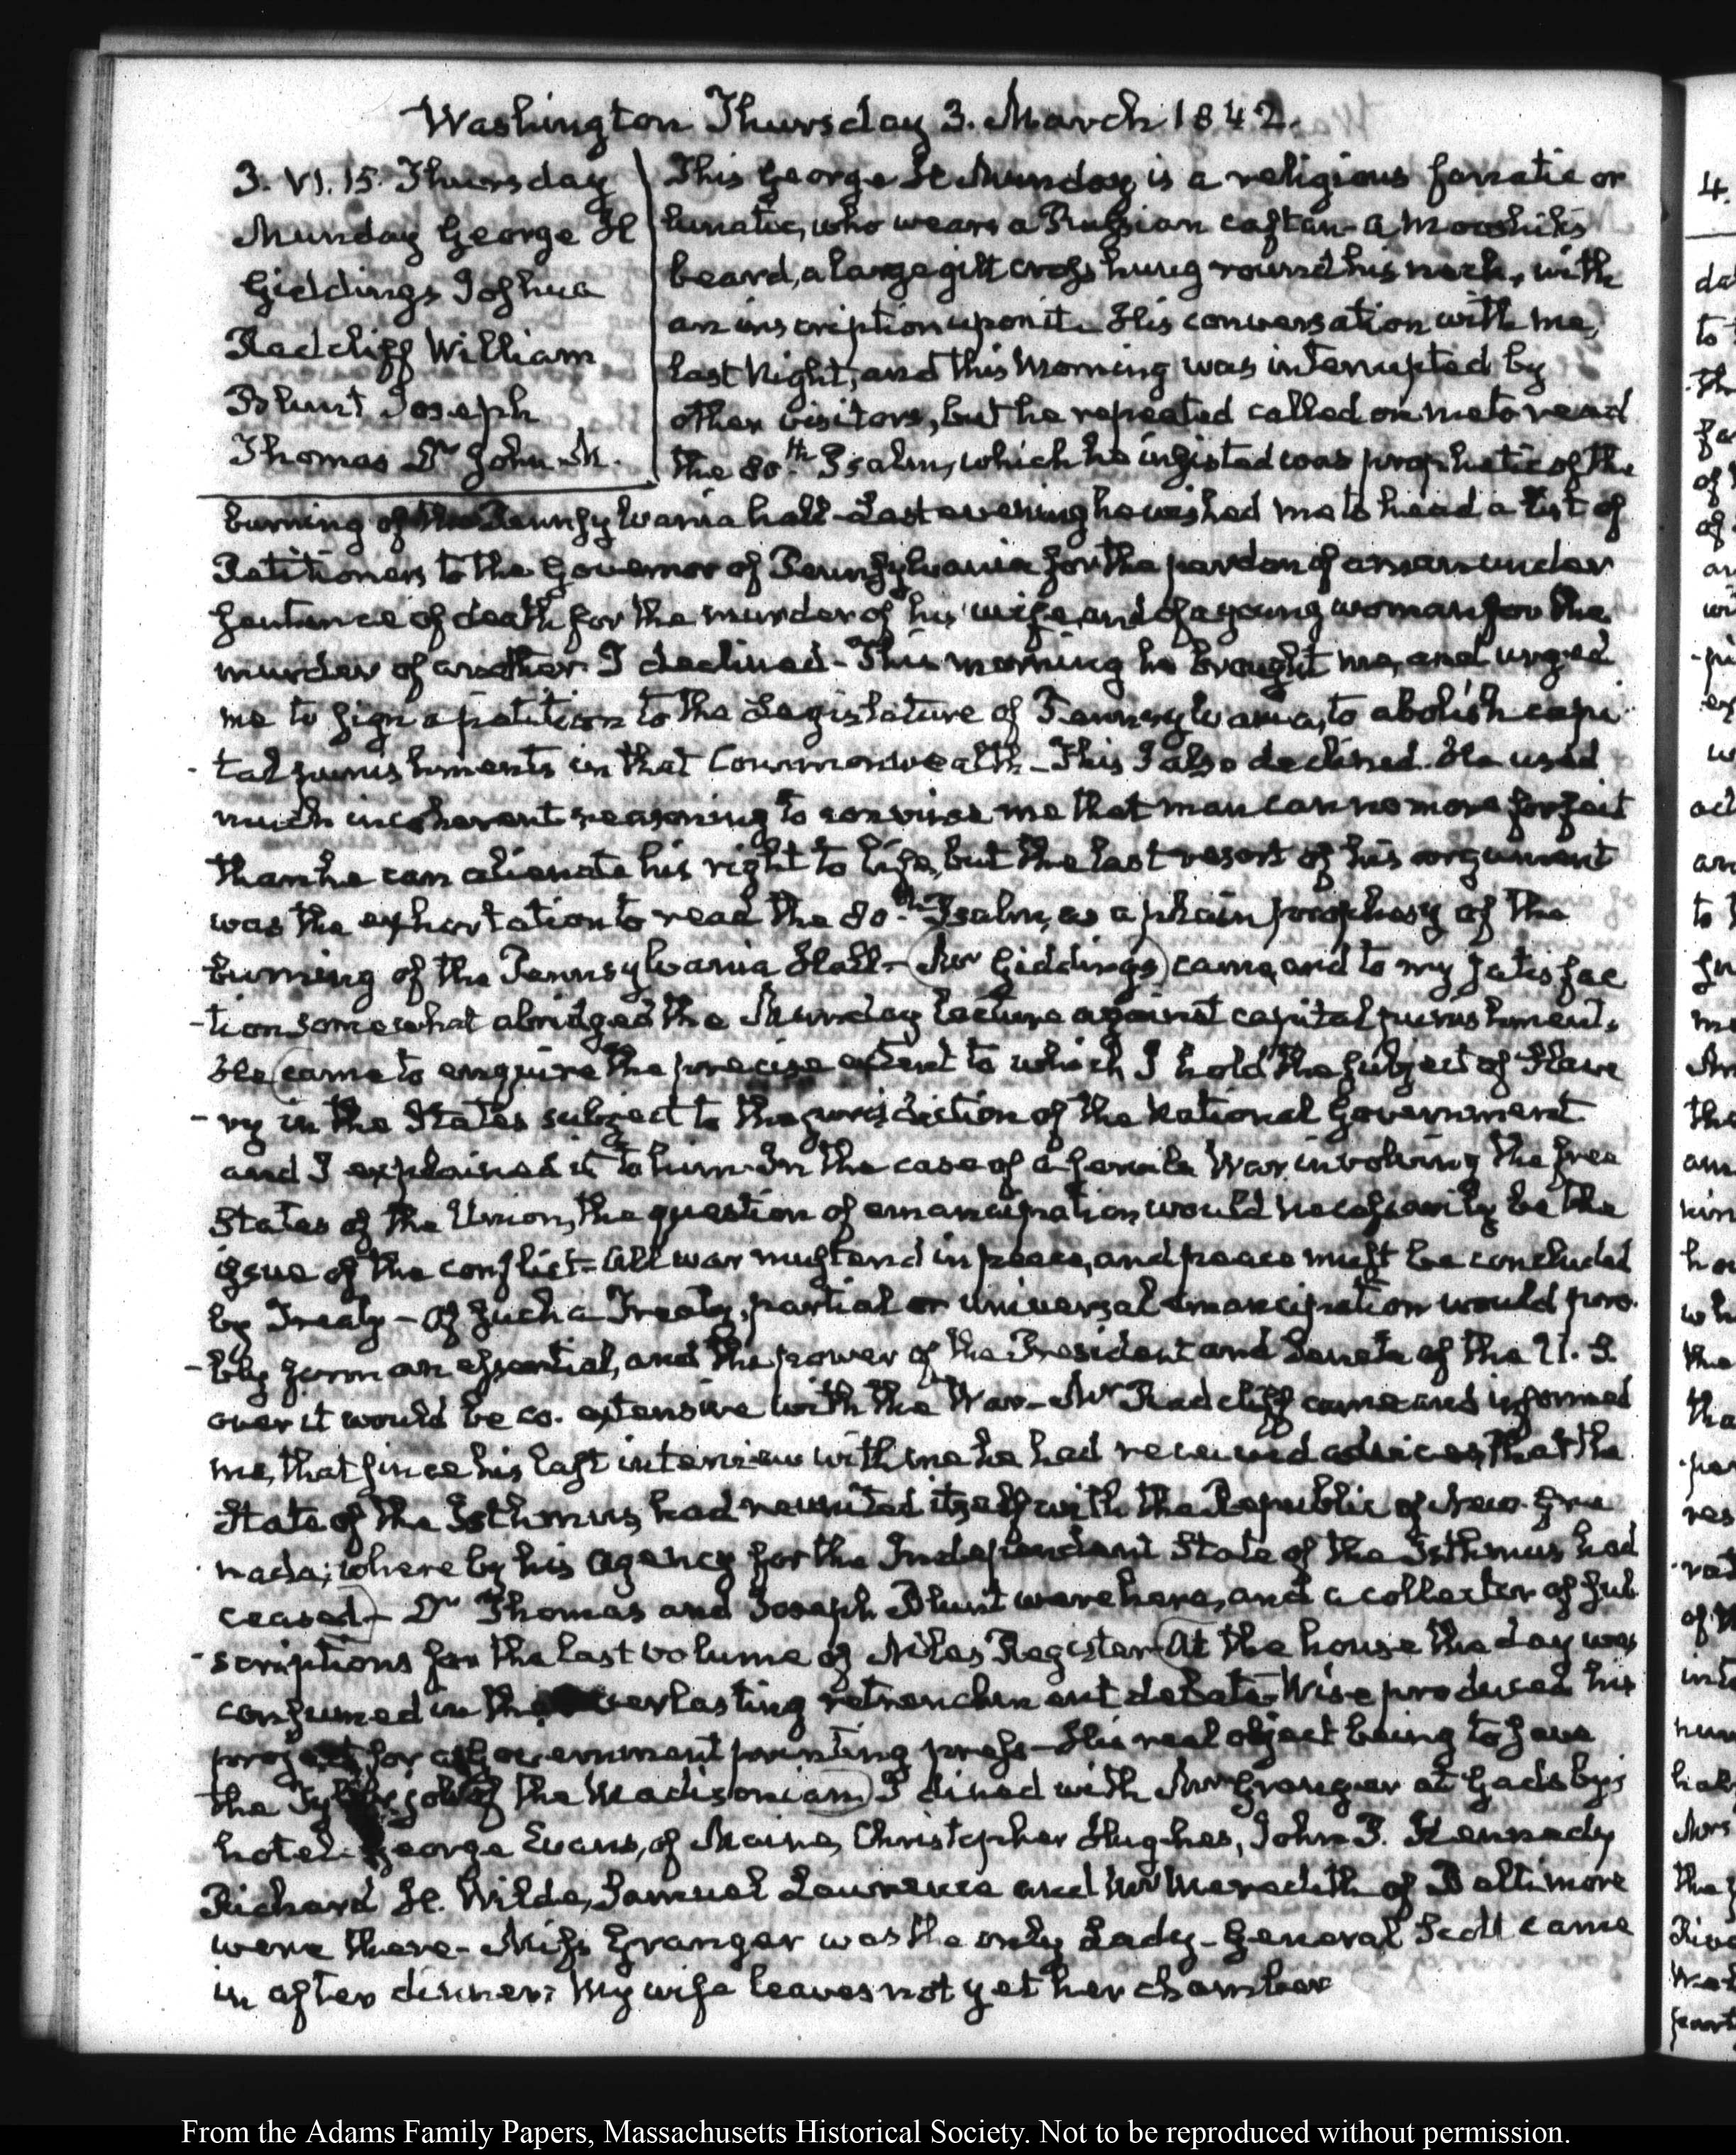 Washington Thursday 3. March 1842.
3. VI. 15. Thursday
Munday George H
Giddings Joshua
Radcliff William
Blunt Joseph
Thomas Dr John M.
This George H Munday is a religious fanatic or
lunatic, who wears a Russian caftan- a
beard, a large gilt cross hung round his neck, with
an inscription upon it. His conversation with me,
last Night, and this Morning was interrupted by
other visitors, but he repeated called on me to read
the 80.th Psalm, which he insisted was prophetic of the
burning of the Pennsylvania hall- Last evening he wished me to head a list of
Petitioners to the Governor of Pennsylvania for the pardon of a man under
sentence of death for the murder of his wife, and of a young woman for the
murder of another. I declined- This morning he brought me, and urged
me to sign a petition to the Legislature of Pennsylvania, to abolish capi
-tal punishments in that Commonwealth- This I also declined. He used
much incoherent reasoning to convince me that man can no more forfeit
than he can alienate his right to life, but the last resort of his argument
was the exhortation to read the 80.th Psalm, as a plain prophesy of the
burning of the Pennsylvania Hall- Mr Giddings came, and to my satisfac
-tion somewhat abridged the Munday lecture against capital punishment.
He came to enquire the precise extent to which I hold the subject of Slave
-ry in the States subject to the jurisdiction of the National Government
and I explained it to him- In the case of a servile War, involving the free
States of the Union, the question of emancipation would necessarily be the
issue of the conflict- All war must end in peace, and peace must be concluded
by Treaty- Of such a Treaty, partial or universal emancipation would pro
-bly form an essential, and the power of the President and Senate of the U. S.
over it would be co-extensive with the War- Mr Radcliff came and informed
me, that since his last interview with me he had received advices, that the
State of the Isthmus, had reunited itself with the Republic of New Gre
-nada; whereby his Agency for the Independent State of the Isthmus had
ceased- Dr Thomas and Joseph Blunt were here, and a collector of sub
-scriptions for the last volume of Niles Register- At the house the day was
consumed in the everlasting retrenchment debate- Wise produced his
project for a Government printing press- His real object being to save
the of the Madisonian I dined with Mr Granger at Gadsby's
hotel- George Evans, of Maine, Christopher Hughes, John P. Kennedy
Richard H. Wilde, Samuel Lawrence and Mr Meredith of Baltimore
were there- Miss Granger was the only Lady- General Scott came
in after dinner. My wife leaves not yet her chamber
From the Adams Family Papers, Massachusetts Historical Society. Not to be reproduced without permission.